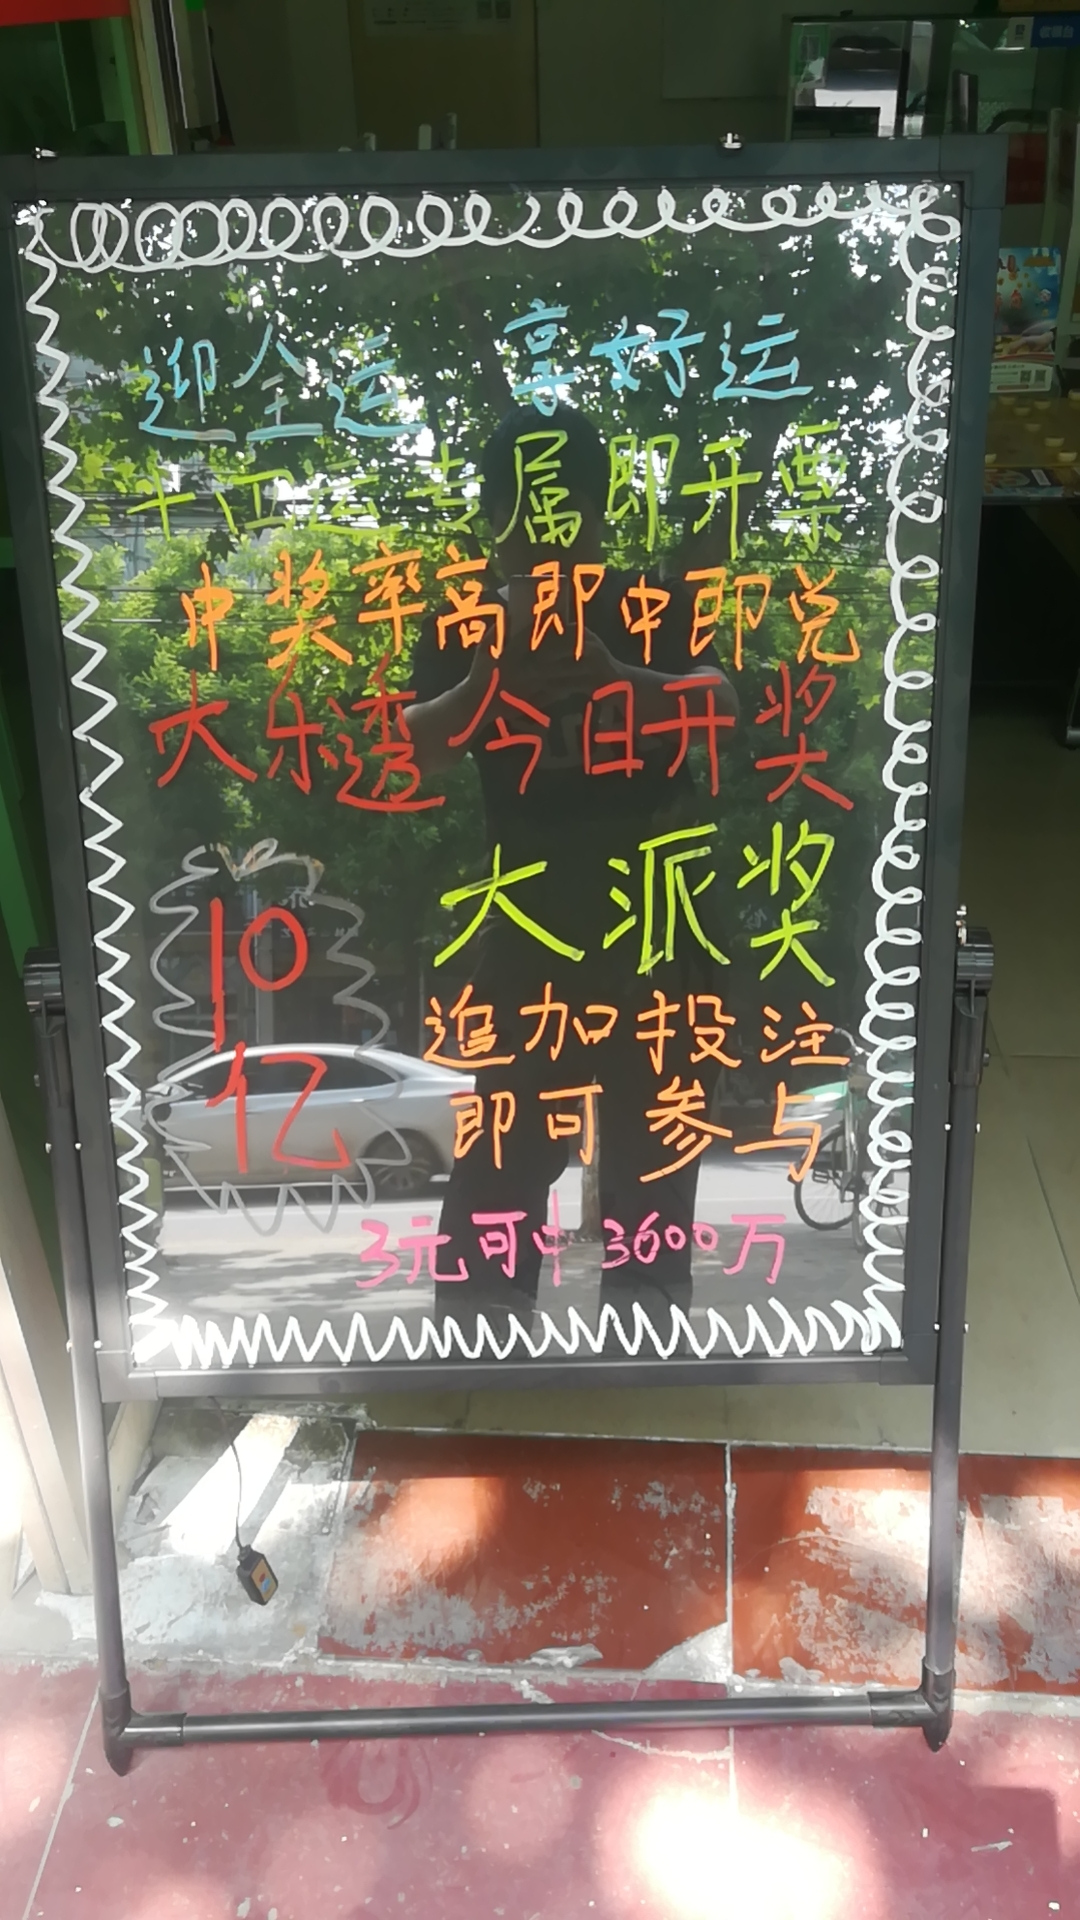 迎全运 享好运
十四运专属即开票
中奖率高即中即兑
大乐透今日开奖
10亿
大派奖
追加投注
即可参与
3元可中3600万